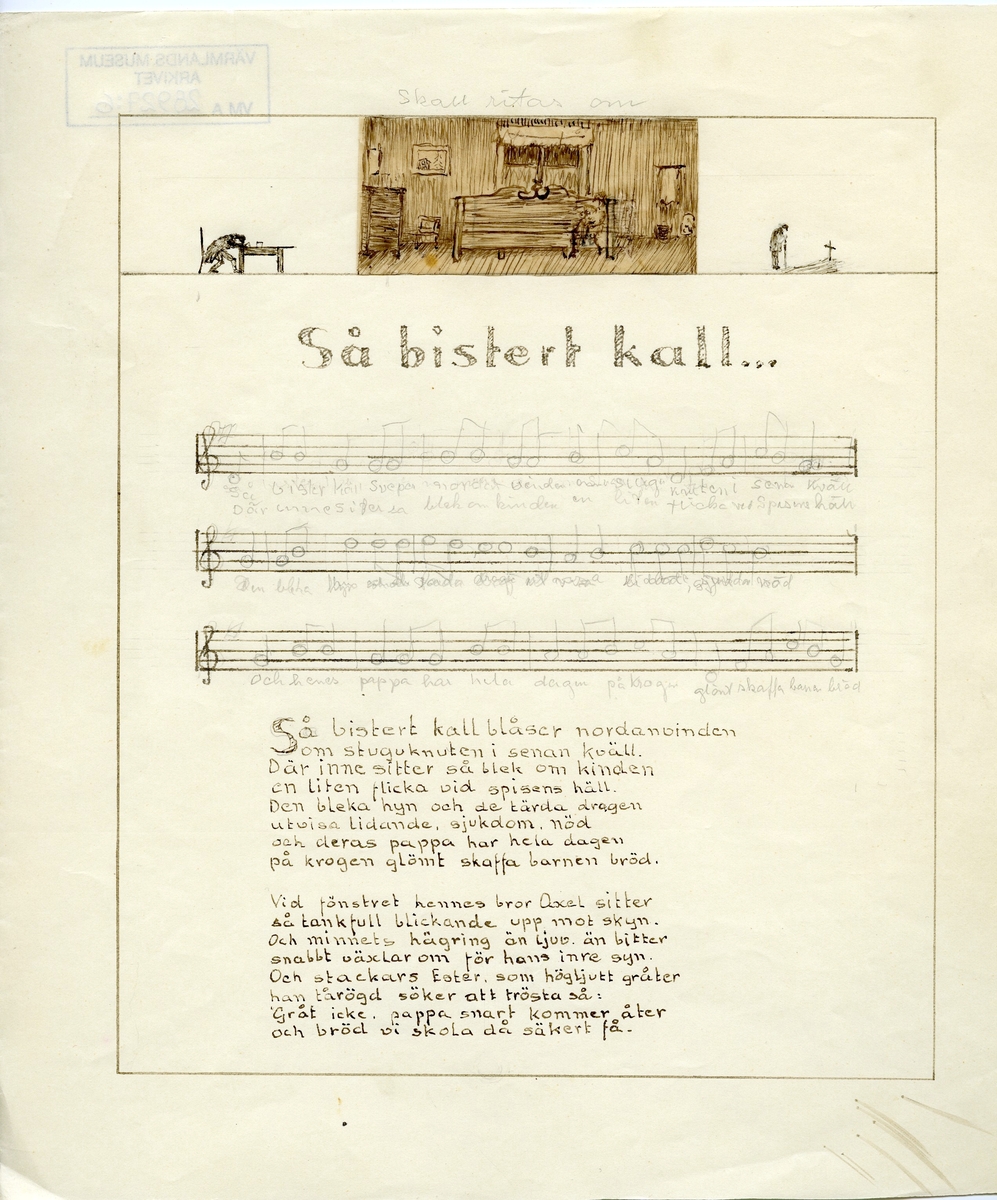 VÄRMLANDS MUSEUM
ARKIVET
VM A
Skall ritas om
Så bistert kall...
Så bister kall sveper nordan vinden knuten i sena kväll
Där inne sitter så blek om kinden en liten flicka vid spisens häll
Den bleka hyn
Och henes pappa har hela dagen på krogen glömt skaffa barna bröd
Så bistert kall blåser nordanvinden
Om stuguknuten i senan kväll.
Där inne sitter så blek om kinden
en liten flicka vid spisens häll.
Den bleka hyn och de tärda dragen
utvisa lidande, sjukdom, nöd
och deras pappa har hela dagen
på krogen glömt skaffa barnen bröd.
Vid fönstret hennes bror Axel sitter
så tankfull blickande upp mot skyn.
Och minnets hägring än ljuv, än bitter
snabbt växlar om för hans inre syn.
Och stackars Ester, som högljutt gråter
han tårögd söker att trösta så:
'Gråt icke, pappa snart kommer åter
och bröd vi skola då säkert få.